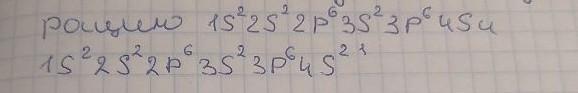 рацию 1S²2S²2P⁶3S²3P⁶4S и
1S²2S²2P⁶3S²3P⁶4S²